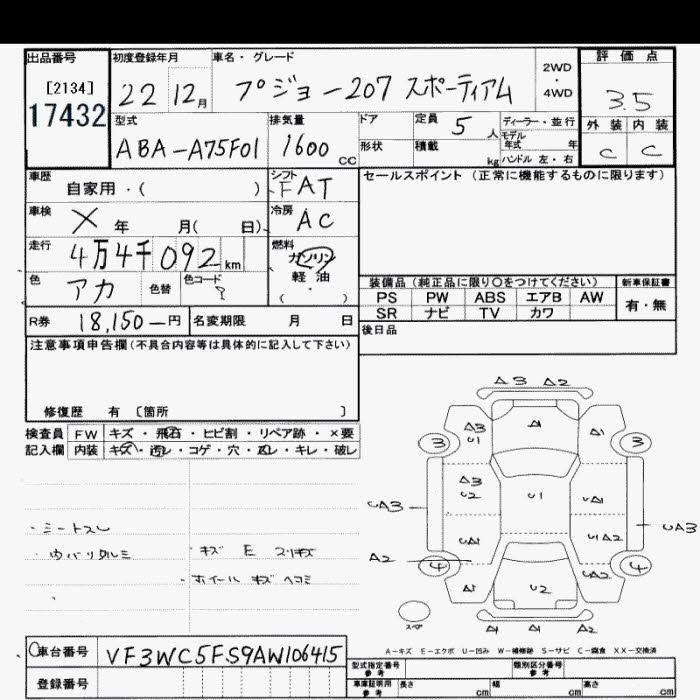 出品番号 初度登録年月 車名・グレード 評価点
[2134] 22 12月 プジョー207 スポーティアム 2WD・4WD 3.5
17432 型式 排気量 ドア 定員 5人 ディーラー・並行 外装 内装
ABA-A75F01 1600cc 形状 積載 kg モデル年式 年 C C
ハンドル 左・右
車歴 自家用・( ) シフト FAT セールスポイント (正常に機能するものに限ります)
車検 X 年 月( 日) 冷房 AC
走行 4万4千092km 燃料 ガソリン
軽油
( ・ )
色 アカ 色替 色コード 装備品 (純正品に限り〇をつけてください) 新車保証書
PS PW ABS エアB AW 有・無
SR ナビ TV カワ
R券 18,150-円 名変期限 月 日 後日品
注意事項申告欄(不具合内容等は具体的に記入して下さい)
修復歴 有 〔箇所 〕
検査員 FW キズ・飛石・ヒビ割・リペア跡・×要
記入欄 内装 キズ・汚レ・コゲ・穴・凹レ・キレ・破レ
A3 A2
A1
A3 U1 A1
3 3
A3 U2 U1 UA1
UA3 UA3
UA1 U1A2
A2 4 UA2 4
A1 U2
A1 A1 A2
スペア
・シートスレ
・ゆバリタルミ ・キズ E スリキズ
・ホイール キズ ヘコミ
A-キズ E-エクボ U-凹み W-補修跡 S-サビ C-腐食 XX-交換済
車台番号 VF3WC5FS9AW106415
登録番号
型式指定番号 参考 類別区分番号 参考
車庫証明用 参考 長さ cm 幅 cm 高さ cm